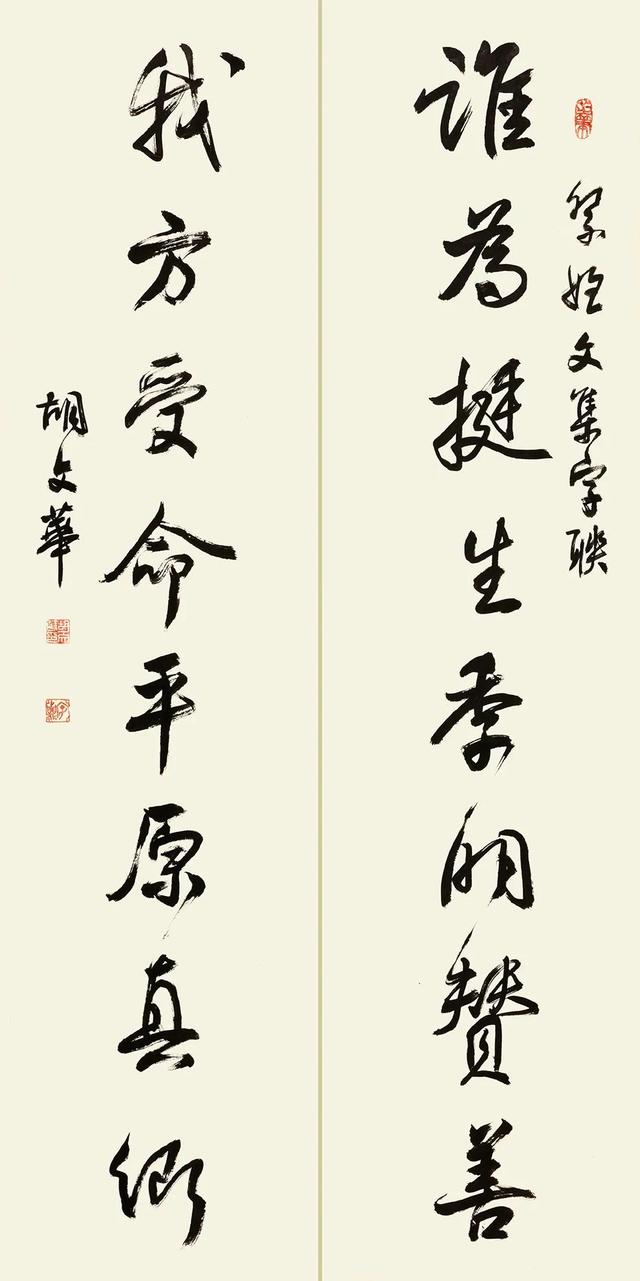 祭姪文集字聯
誰為挺生季明賛善
我方受命平原真卿
胡文華